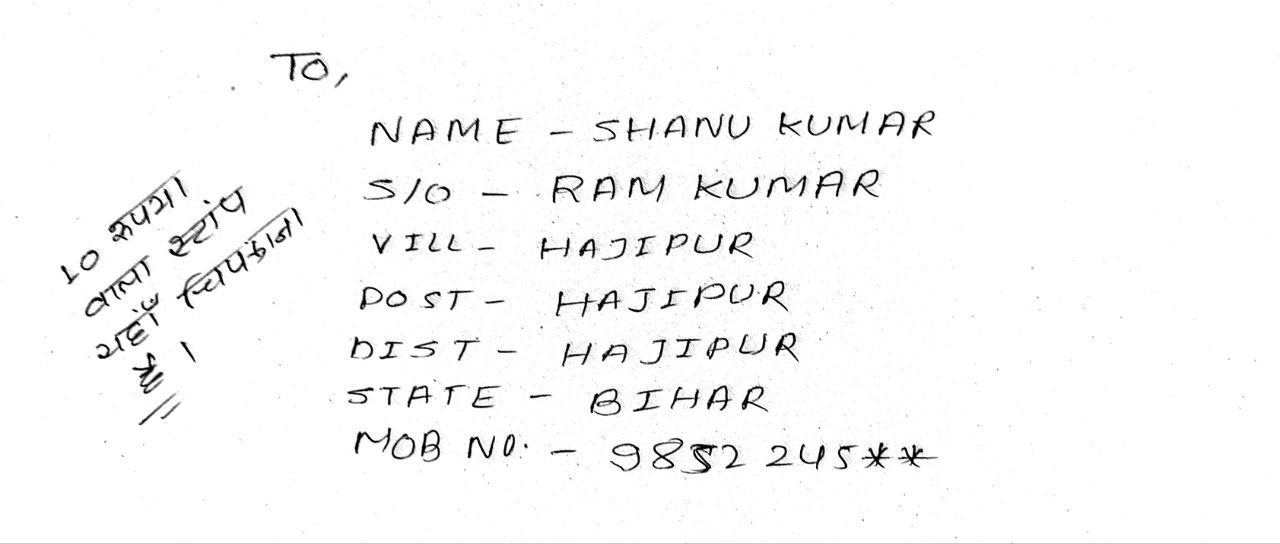 TO,
NAME - SHANU KUMAR
S/O - RAM KUMAR
VILL - HAJIPUR
POST - HAJIPUR
DIST - HAJIPUR
STATE - BIHAR
MOB NO. - 9852 245**
10 रुपया
वाला स्टांप
यहाँ चिपकाना
है।